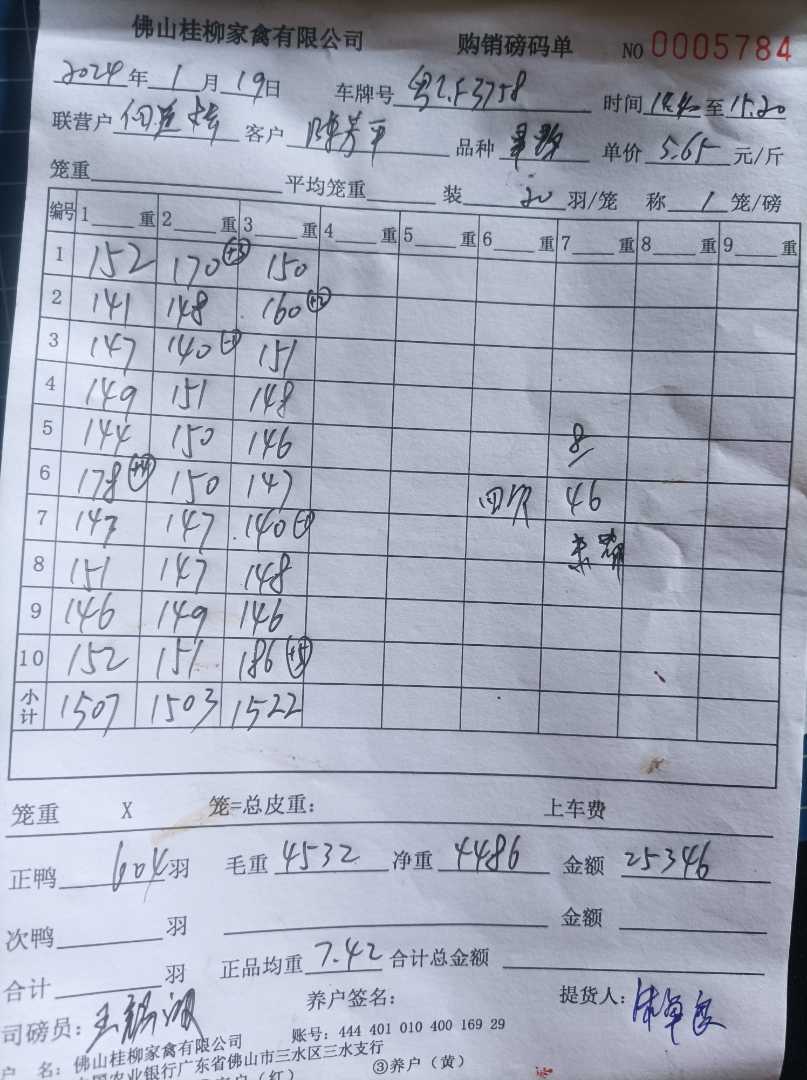 佛山桂柳家禽有限公司 购销磅码单 NO 0005784
2024年1月19日 车牌号 时间 至 15.20
联营户 客户 陈芳平 品种 单价 5.65 元/斤
笼重 平均笼重 装 20 羽/笼 称 1 笼/磅
编号 1 重 2 重 3 重 4 重 5 重 6 重 7 重 8 重 9 重
1 152 170 +3 150
2 141 148 160 +2
3 147 140 -1 151
4 149 151 148
5 144 150 146 8
6 178 +4 150 147 回 46
7 147 147 140 -1
8 151 147 148
9 146 149 146
10 152 151 186 +5
小计 1507 1503 1522
笼重 X 笼=总皮重: 上车费
正鸭 604 羽 毛重 4532 净重 4486 金额 25346
次鸭 羽 金额
合计 羽 正品均重 7.42 合计总金额
司磅员: 养户签名: 提货人:
户 名: 佛山桂柳家禽有限公司 账号: 444 401 010 400 169 29
国农业银行广东省佛山市三水区三水支行
客户(红) ③养户(黄)